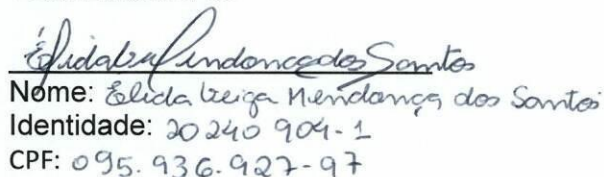 Élida Veiga Mendonça dos Santos
Nome: Élida Veiga Mendonça dos Santos
Identidade: 20240904-1
CPF: 095.936.927-97